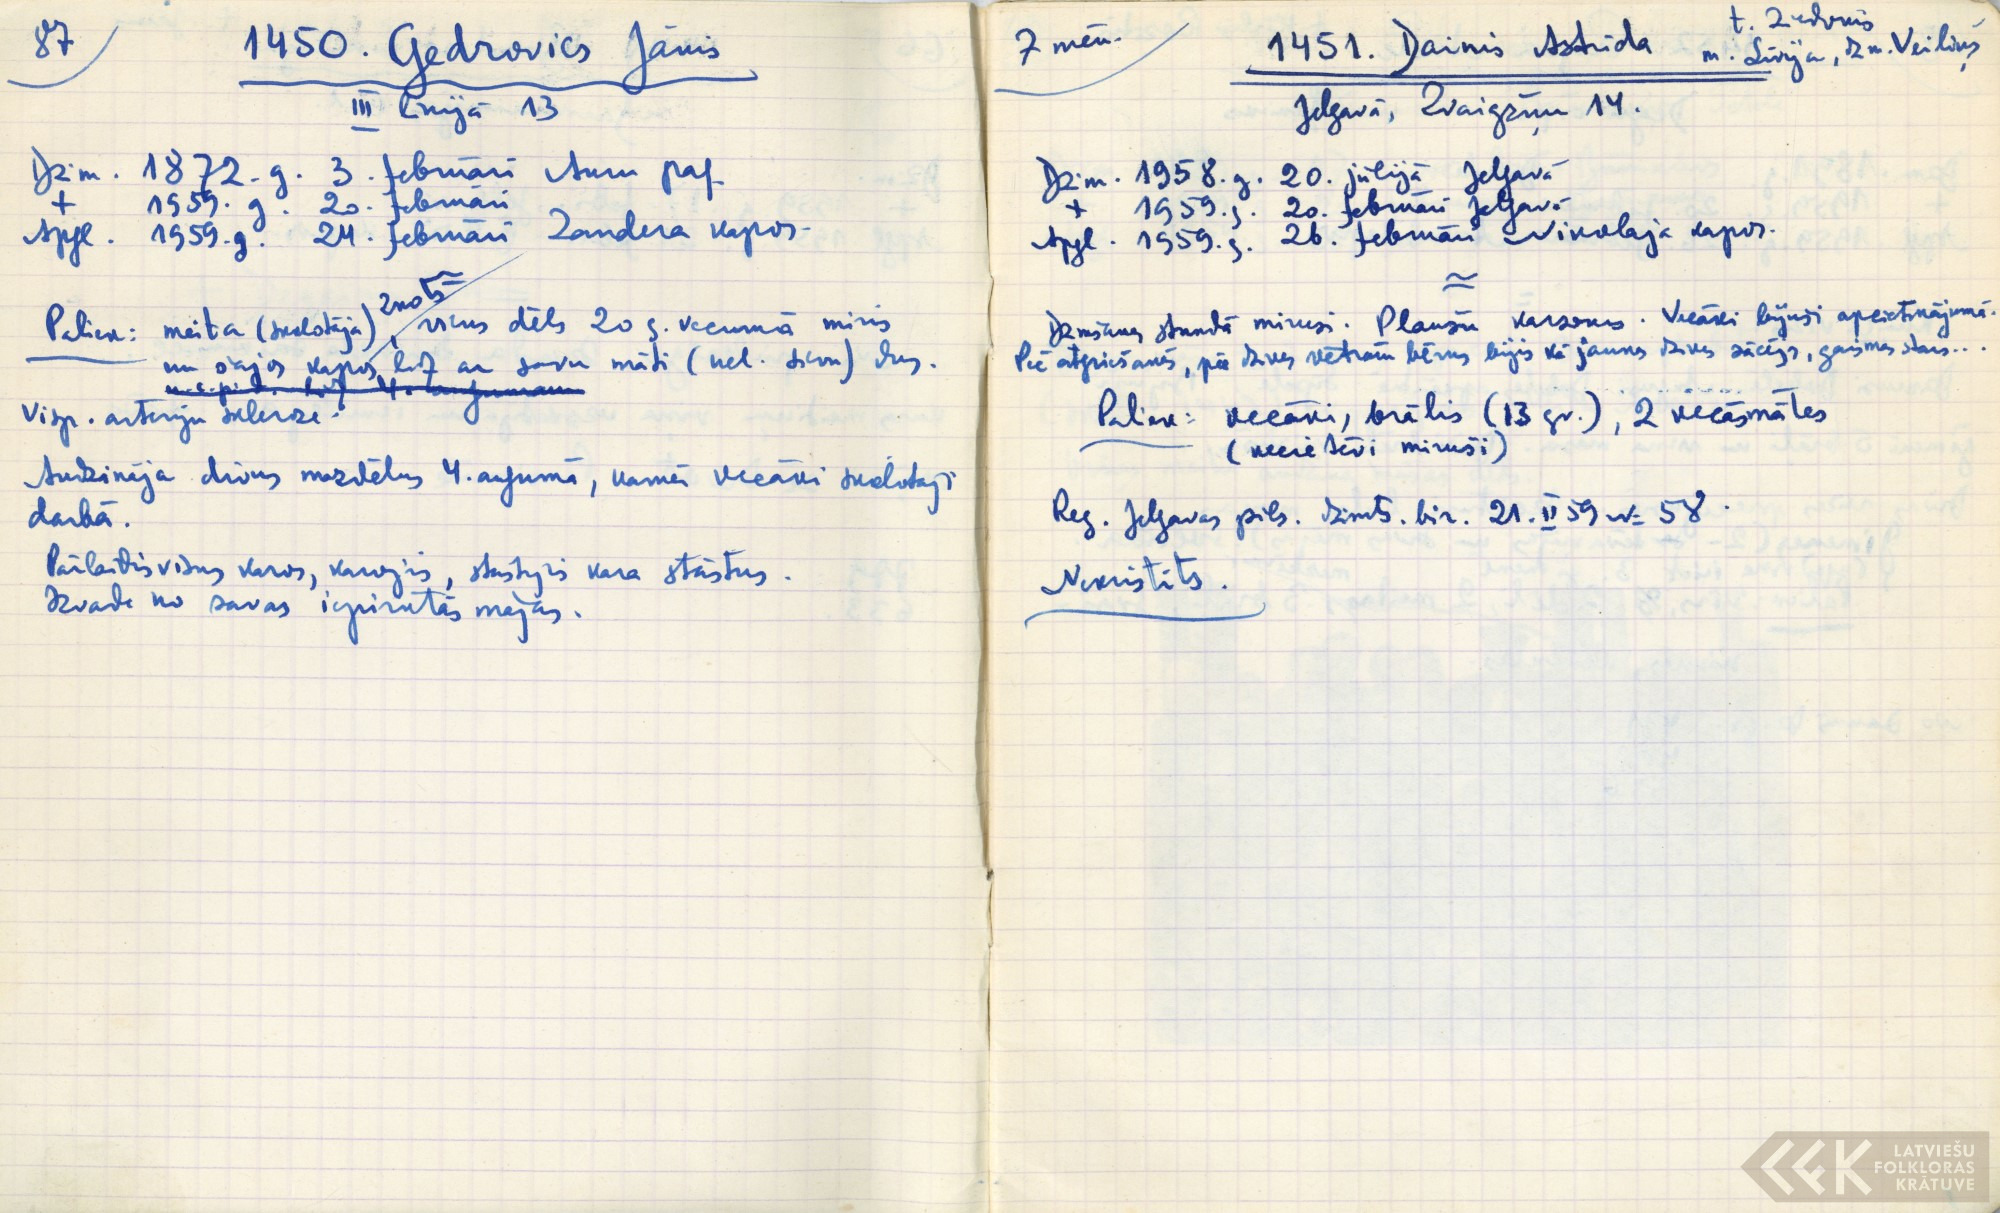 87
1450. Gedrovics Jānis
III līnijā 13
Dzim. 1872. g. 3. februārī Auru pag.
+ 1959. g. 20. februārī
Apgl. 1959. g. 24. februārī Zandera kapos.
Paliek: meita (skolotāja) znots, viens dēls 20 g. vecumā miris
un šajos kapos, līdz ar savu māti (nel. sievu) dus.
Visp. arteriju skleroze.
Audzināja divus mazdēlus 4. augumā, kamēr vecāki skolotāji
darbā.
Pārlaidis visus karos, karojis, stāstījis kara stāstus.
Izvade no savas iepirktās mājas.
7 mēn.
1451. Dainis Astrida
t. Ziedonis
m. Līvija, dzm. Veiliņš
Jelgavā, Zvaigžņu 14.
Dzim. 1958. g. 20. jūlijā Jelgavā
+ 1959. g. 20. februārī Jelgavā
Apgl. 1959. g. 26. februārī Nikolaja kapos.
Dzimšanas stundā mirusi. Plaušu karsonis. Vecāki bijuši apcietinājumā.
Pēc atgriešanās, pēc dzīves vētrām bērns bijis kā jaunas dzīves sācējs, gaismas stars...
Paliek: vecāki, brālis (13 gr.), 2 vecāsmātes
(vecie tēvi miruši)
Reg. Jelgavas pils. dzimts. bir. 21. II 59 N= 58.
Nekristīts.
LATVIEŠU
FOLKLORAS
KRĀTUVE